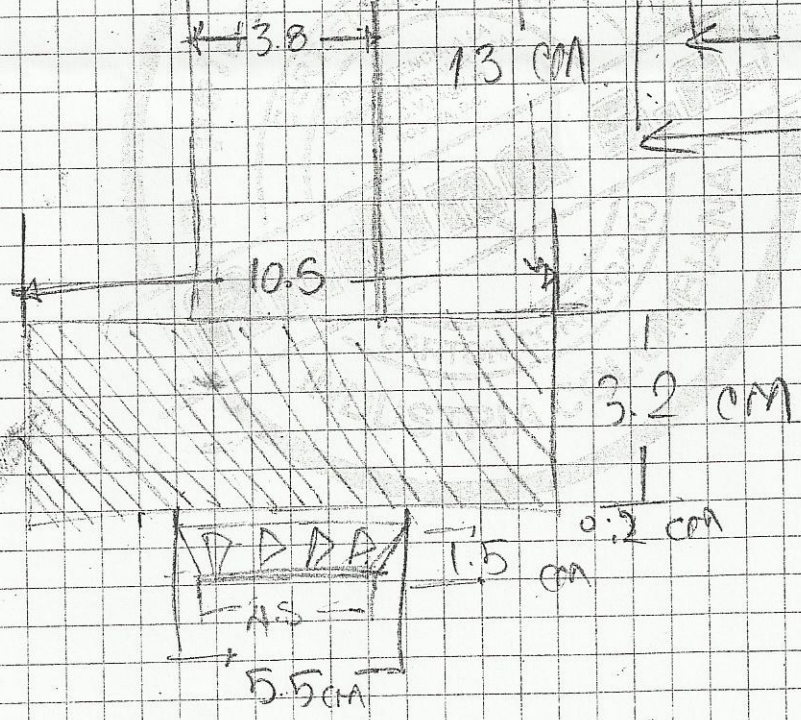 3.8
13 cm
10.5
3.2 cm
0.2 cm
1.5 cm
5.5cm